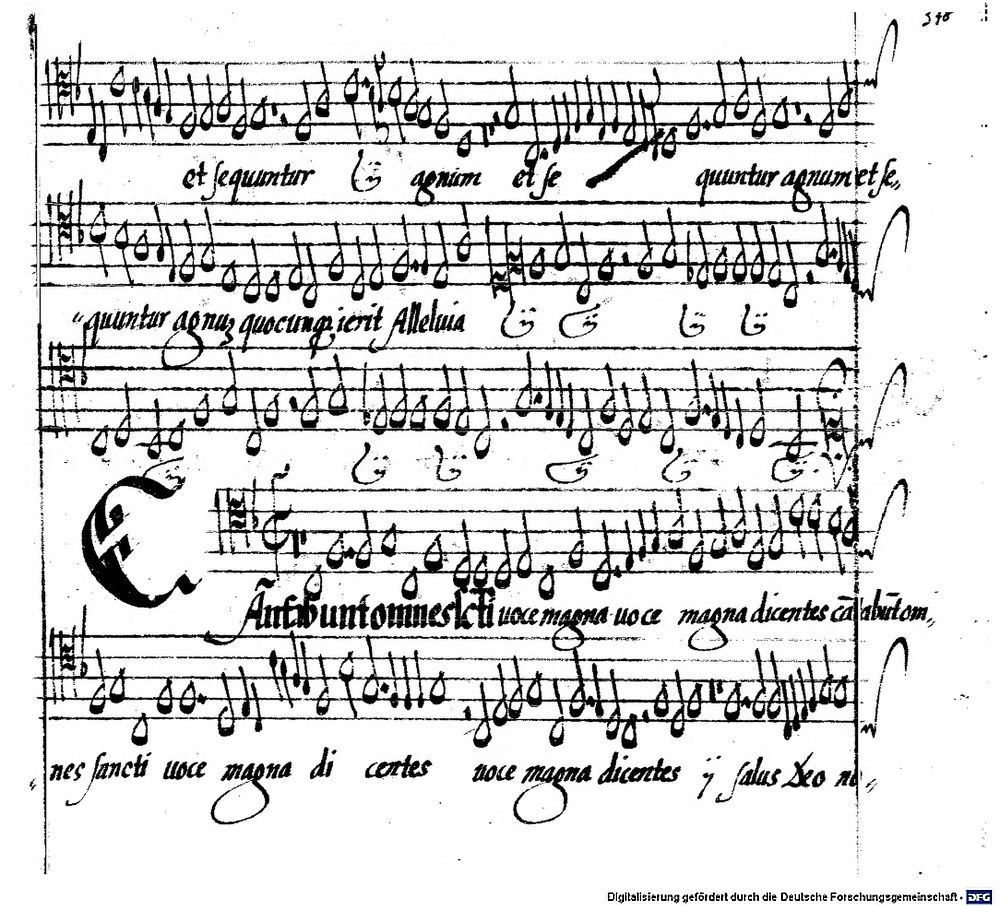 340
et sequuntur ij agnum et se quuntur agnum et se„
„quuntur agnuʒ quocunqꝫ ierit Alleluia ij ij ij ij
ij ij ij ij ij ij
CAn̄tabunt omnes sc̄ti uoce magna uoce magna dicentes cātabūt om„
„nes sancti uoce magna di centes uoce magna dicentes ij salus Deo nr̄o„
Digitalisierung gefördert durch die Deutsche Forschungsgemeinschaft - DFG